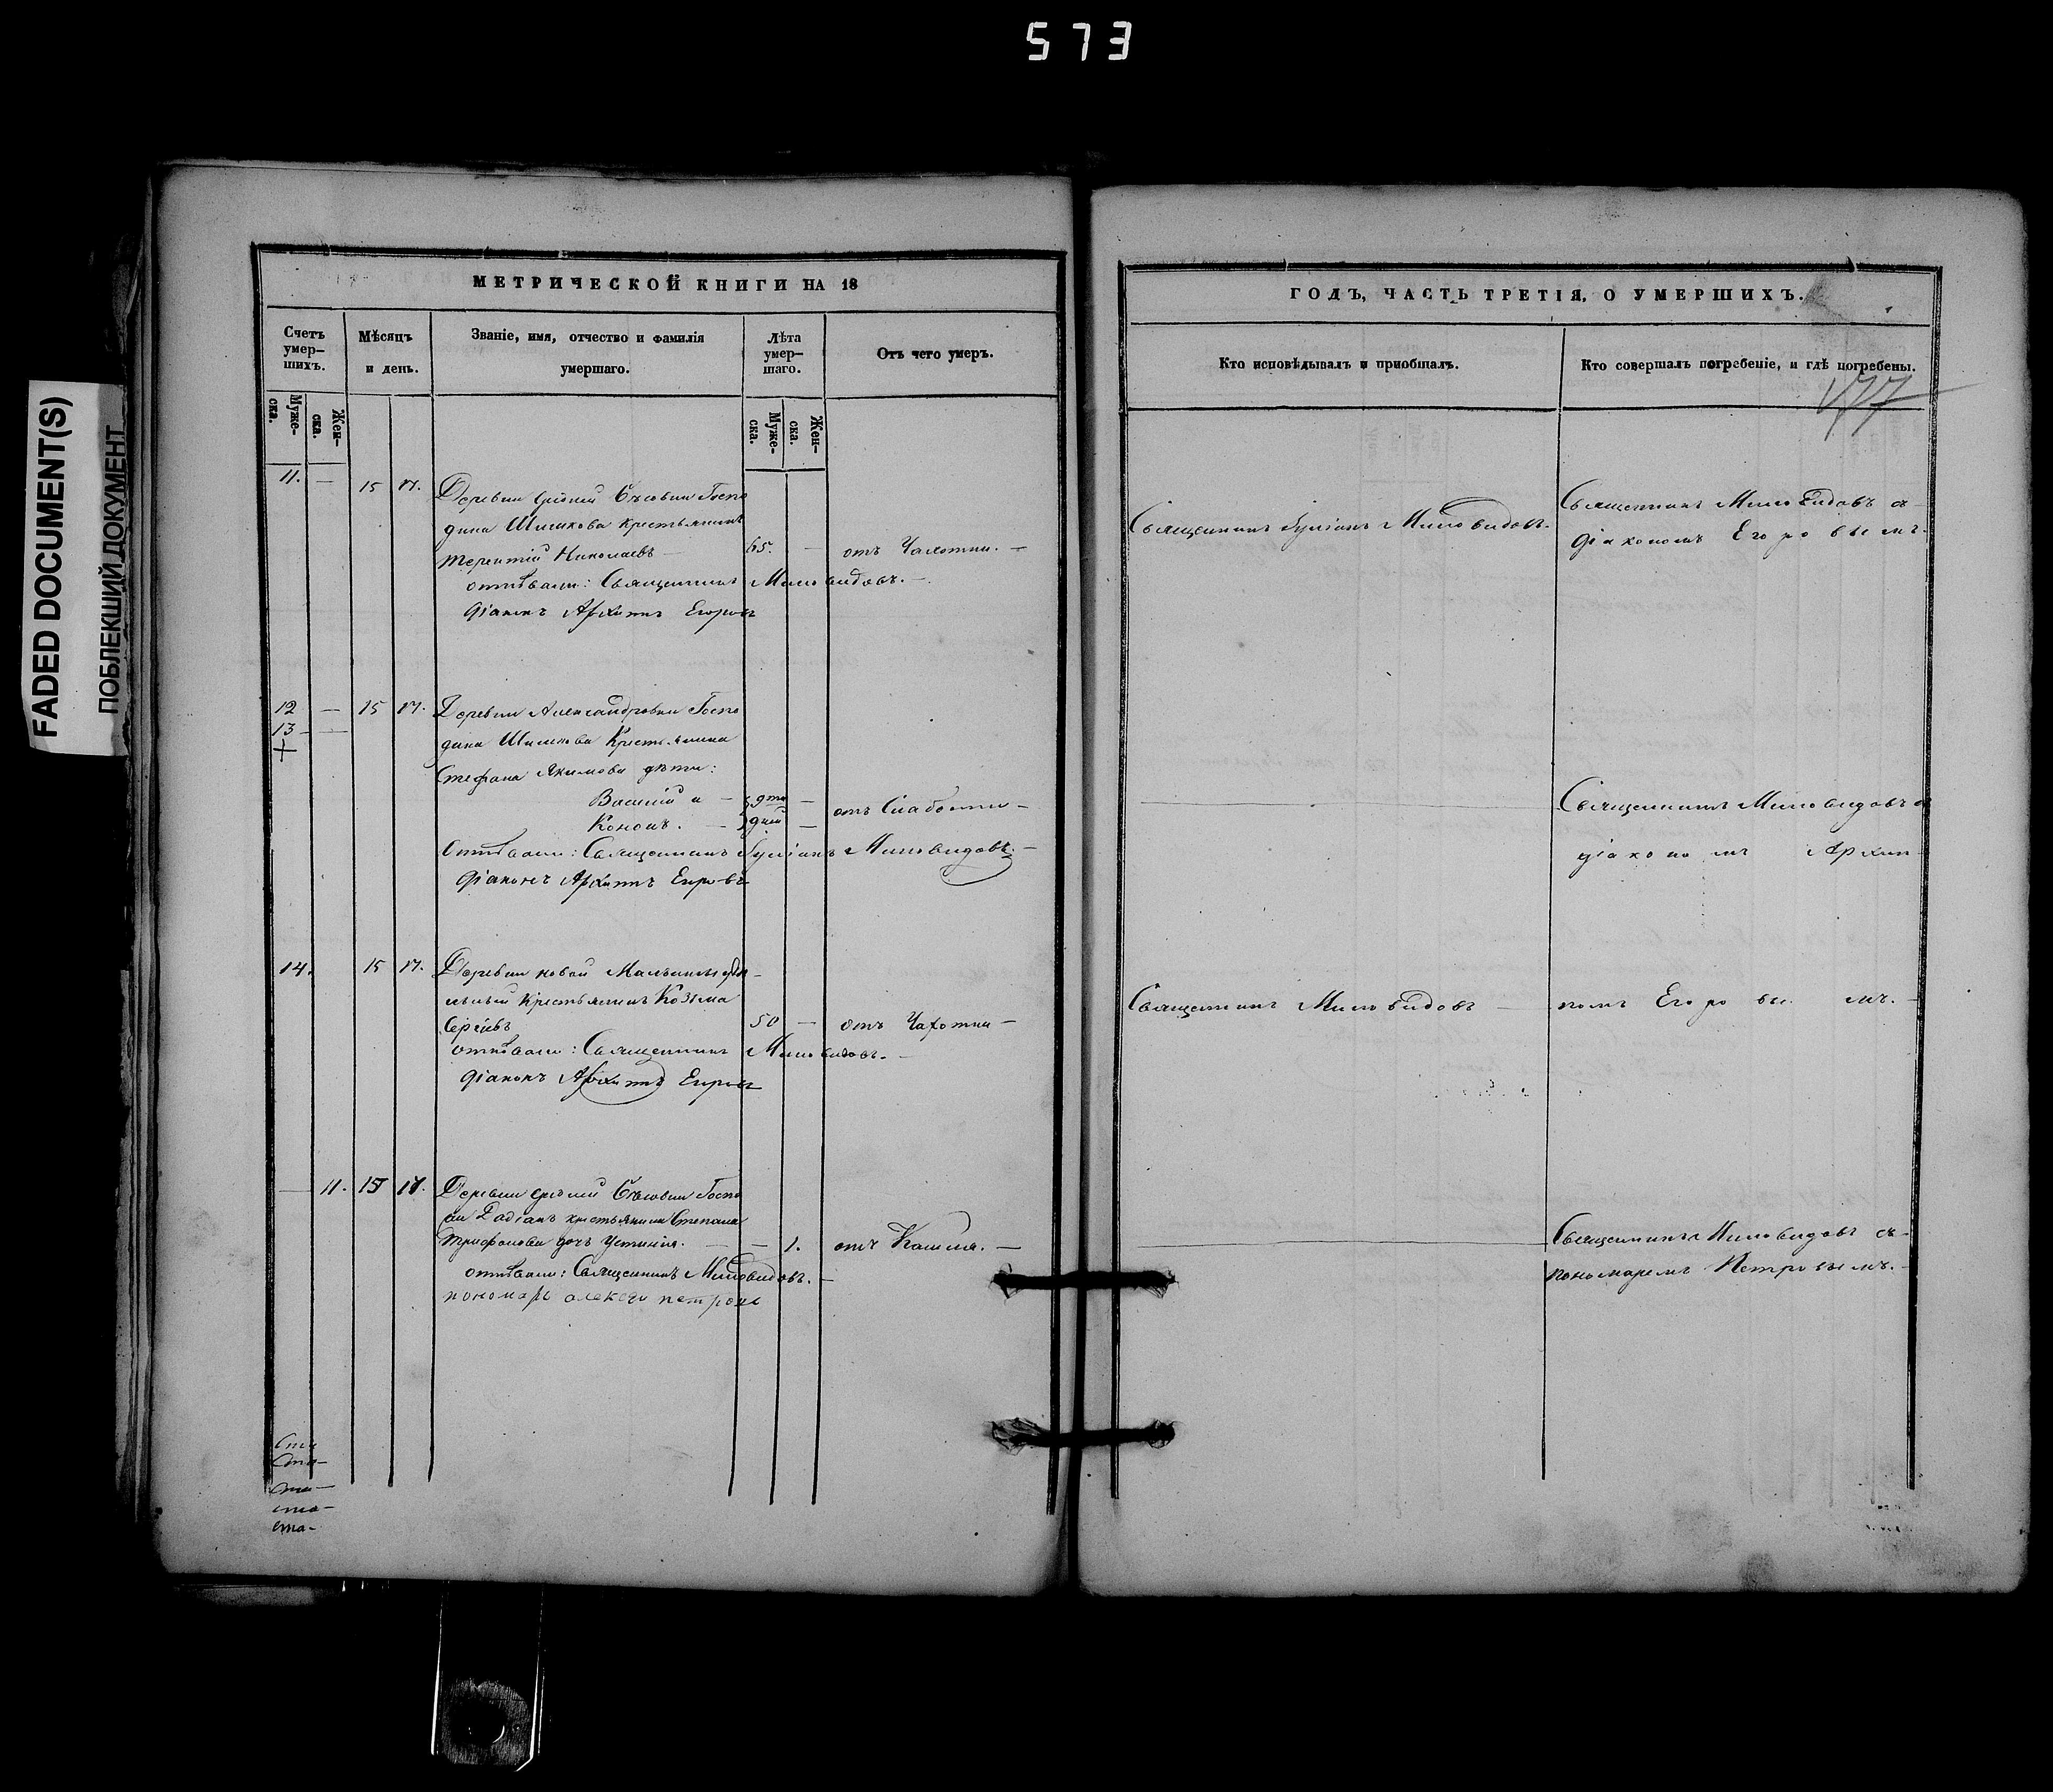 573
FADED DOCUMENT(S)
ПОБЛЕКШИЙ ДОКУМЕНТ
МЕТРИЧЕСКОЙ КНИГИ НА 18
Счетъ умер-шихъ.
Мѣсяцъ и день.
Званіе, имя, отчество и фамилія умершаго.
Лѣта умер-шаго.
Отъ чего умеръ.
Муже-ска.
Жен-ска.
Муже-ска.
Жен-ска.
11. — 15 17. Деревни Средней Госпо
дина Шишкова крестьянинъ
Терентій Николаевъ — 65. — отъ Чахотки. —
отпѣвали: Священникъ Миловидовъ. —
діаконъ Архипъ Егоровъ
12 — 15 17. Деревни Александровки Госпо
13 — дина Шишкова Крестьянина
Стефана Якимова дѣти:
Василій и —
Кононъ. — дней — отъ Слабости —
Отпѣвали: Священникъ Миловидовъ. —
діаконъ Архипъ Егоровъ
14. 15 17. Деревни новой
крестьянинъ Козьма
Сергѣевъ 50 — отъ Чахотки —
отпѣвали: Священникъ Миловидовъ. —
діаконъ Архипъ Егоровъ
— 11. 15 17. Деревни Средней Госпо
крестьянина Степана
Трифонова дочь Устинія. — — 1. отъ Кашля. —
отпѣвали: Священникъ Миловидовъ. —
пономарь алексей петровъ
ГОДЪ, ЧАСТЬ ТРЕТІЯ, О УМЕРШИХЪ.
Кто исповѣдывалъ и пріобщалъ.
Кто совершалъ погребеніе, и гдѣ погребены.
177
Священникъ Миловидовъ.
Священникъ Миловидовъ съ
діакономъ Егоровымъ.
Священникъ Миловидовъ съ
діакономъ Архип
Священникъ Миловидовъ —
помъ Егоровымъ. —
Священникъ Миловидовъ съ
пономаремъ Петровымъ. —